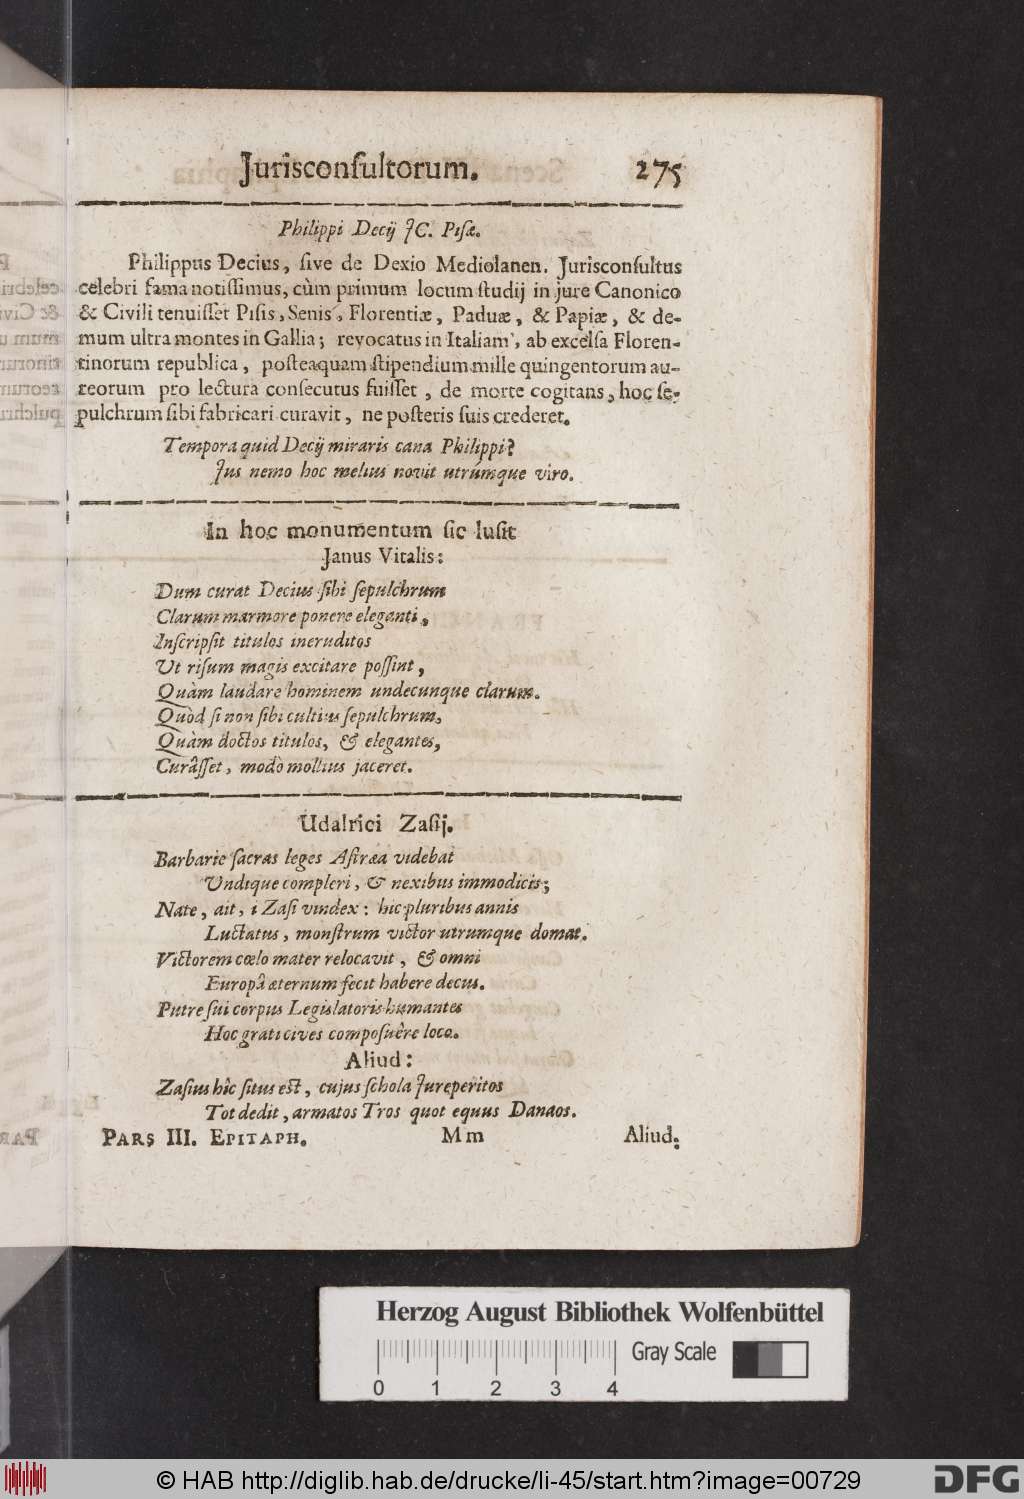 Jurisconſultorum. 275
Philippi Decij JC. Piſæ.
Philippus Decius, ſive de Dexio Mediolanen. Jurisconſultus
celebri fama notiſſimus, cùm primum locum ſtudij in jure Canonico
& Civili tenuiſſet Piſis, Senis, Florentiæ, Paduæ, & Papiæ, & de-
mum ultra montes in Gallia; revocatus in Italiam, ab excelſa Floren-
tinorum republica, poſteaquam ſtipendium mille quingentorum au-
reorum pro lectura conſecutus fuiſſet, de morte cogitans, hoc ſe-
pulchrum ſibi fabricari curavit, ne poſteris ſuis crederet.
Tempora quid Decij miraris cana Philippi?
Jus nemo hoc melius novit utrúmque viro.
In hoc monumentum ſic luſit
Janus Vitalis:
Dum curat Decius ſibi ſepulchrum
Clarum marmore ponere eleganti,
Inſcripſit titulos ineruditos
Ut riſum magis excitare poſſint,
Quàm laudare hominem undecunque clarum.
Quòd ſi non ſibi cultius ſepulchrum,
Quàm doctos titulos, & elegantes,
Curâſſet, modò mollius jaceret.
Udalrici Zaſij.
Barbarie ſacras leges Aſtræa videbat
Undique compleri, & nexibus immodicis;
Nate, ait, i Zaſi vindex: hic pluribus annis
Luctatus, monſtrum victor utrumque domat.
Victorem cœlo mater relocavit, & omni
Europâ æternum fecit habere decus.
Putre ſui corpus Legislatoris humantes
Hoc grati cives compoſuêre loco.
Aliud:
Zaſius hîc ſitus eſt, cujus ſchola Jureperitos
Tot dedit, armatos Tros quot equus Danaos.
PARS III. EPITAPH. Mm Aliud:
Herzog August Bibliothek Wolfenbüttel
Gray Scale
0 1 2 3 4
© HAB http://diglib.hab.de/drucke/li-45/start.htm?image=00729
DFG